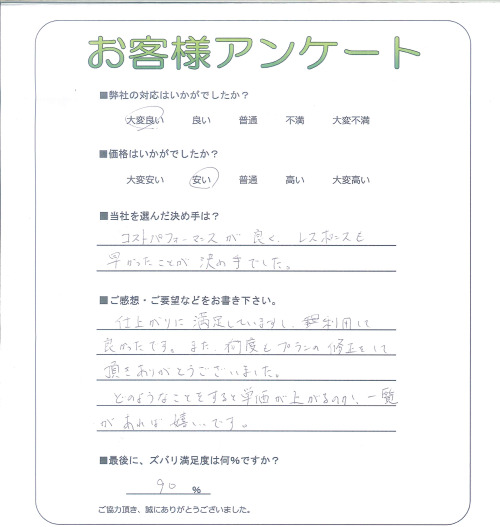 お客様アンケート
■弊社の対応はいかがでしたか?
大変良い 良い 普通 不満 大変不満
■価格はいかがでしたか?
大変安い 安い 普通 高い 大変高い
■当社を選んだ決め手は?
コストパフォーマンスが良く、レスポンスも
早かったことが決め手でした。
■ご感想・ご要望などをお書き下さい。
仕上がりに満足していますし、利用して
良かったです。また、何度もプランの修正をして
頂きありがとうございました。
どのようなことをすると単価が上がるのか、一覧
があれば嬉しいです。
■最後に、ズバリ満足度は何%ですか?
90 %
ご協力頂き、誠にありがとうございました。